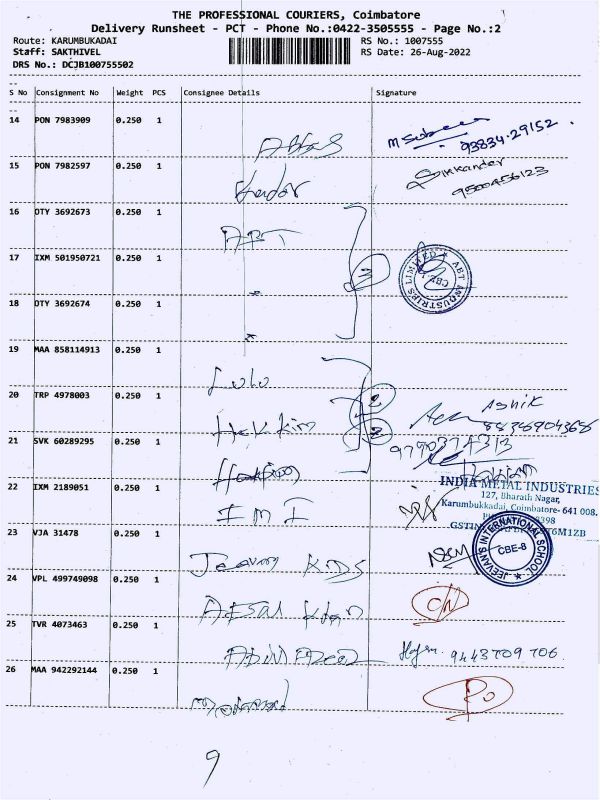 THE PROFESSIONAL COURIERS, Coimbatore
Delivery Runsheet - PCT - Phone No.:0422-3505555 - Page No.:2
Route: KARUMBUKADAI RS No.: 1007555
Staff: SAKTHIVEL RS Date: 26-Aug-2022
DRS No.: DCJB100755502
S No Consignment No Weight PCS Consignee Details Signature
14 PON 7983909 0.250 1 93834-29152
15 PON 7982597 0.250 1 Sikkander
9500456123
16 OTY 3692673 0.250 1 ABT
17 IXM 501950721 0.250 1 ABT INDUSTRIES LIMITED CBE
18 OTY 3692674 0.250 1
19 MAA 858114913 0.250 1 Lulu
20 TRP 4978003 0.250 1 Hakkim Ashik
21 SVK 60289295 0.250 1 9790374313
22 IXM 2189051 0.250 1 I M I
INDIA METAL INDUSTRIES
127, Bharath Nagar,
Karumbukkadai, Coimbatore- 641 008.
23 VJA 31478 0.250 1 Jeevans Kids
JEEVANS INTERNATIONAL SCHOOL CBE-8
24 VPL 499749098 0.250 1 Afsal Khan
25 TVR 4073463 0.250 1 9443709706.
26 MAA 942292144 0.250 1
9